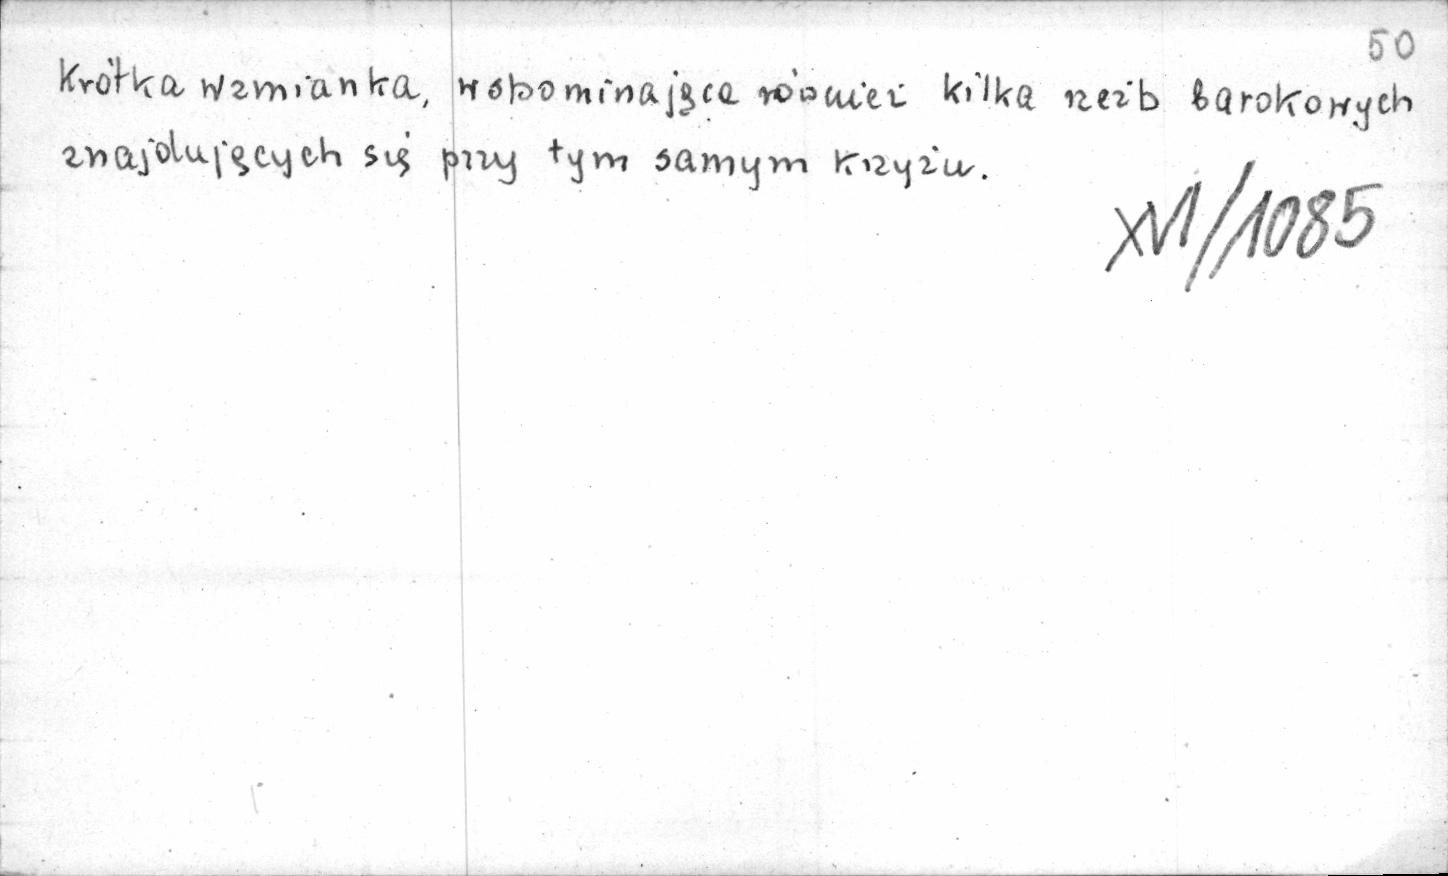 50
Krótka wzmianka, wspominająca również kilka rzeźb barokowych
znajdujących się przy tym samym krzyżu.
XVI/1085